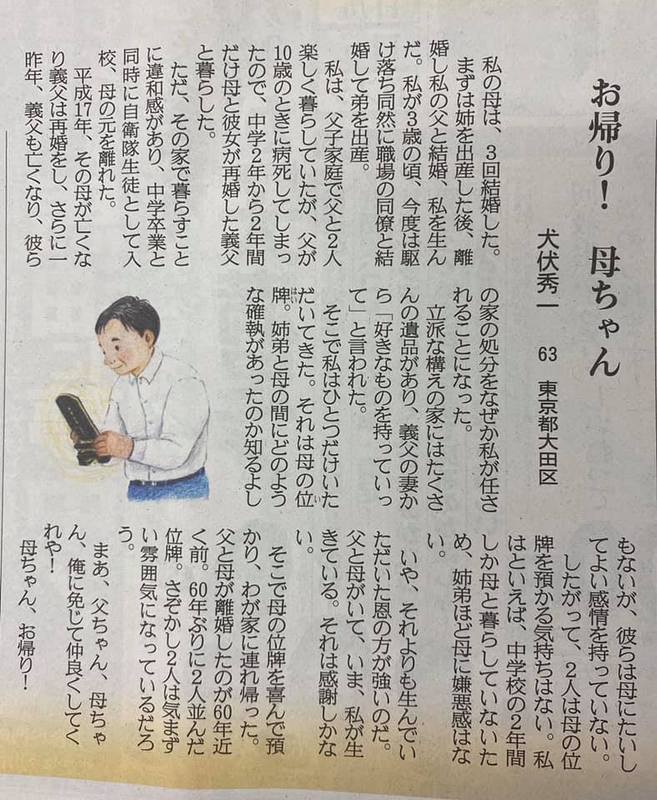 お帰り！　母ちゃん
犬伏秀一　63　東京都大田区
私の母は、３回結婚した。
まずは姉を出産した後、離
婚し私の父と結婚、私を生ん
だ。私が３歳の頃、今度は駆
け落ち同然に職場の同僚と結
婚して弟を出産。
私は、父子家庭で父と２人
楽しく暮らしていたが、父が
10歳のときに病死してしまっ
たので、中学２年から２年間
だけ母と彼女が再婚した義父
と暮らした。
ただ、その家で暮らすこと
に違和感があり、中学卒業と
同時に自衛隊生徒として入
校、母の元を離れた。
平成17年、その母が亡くな
り義父は再婚をし、さらに一
昨年、義父も亡くなり、彼ら
の家の処分をなぜか私が任さ
れることになった。
立派な構えの家にはたくさ
んの遺品があり、義父の妻か
ら「好きなものを持っていっ
て」と言われた。
そこで私はひとつだけいた
だいてきた。それは母の位
牌。姉弟と母の間にどのよう
な確執があったのか知るよし
もないが、彼らは母にたいし
てよい感情を持っていない。
したがって、２人は母の位
牌を預かる気持ちはない。私
はといえば、中学校の２年間
しか母と暮らしていないた
め、姉弟ほど母に嫌悪感はな
い。
いや、それよりも生んでい
ただいた恩の方が強いのだ。
父と母がいて、いま、私が生
きている。それは感謝しかな
い。
そこで母の位牌を喜んで預
かり、わが家に連れ帰った。
父と母が離婚したのが60年近
く前。60年ぶりに２人並んだ
位牌。さぞかし２人は気まず
い雰囲気になっているだろ
う。
まあ、父ちゃん、母ちゃ
ん、俺に免じて仲良くしてく
れや！
母ちゃん、お帰り！